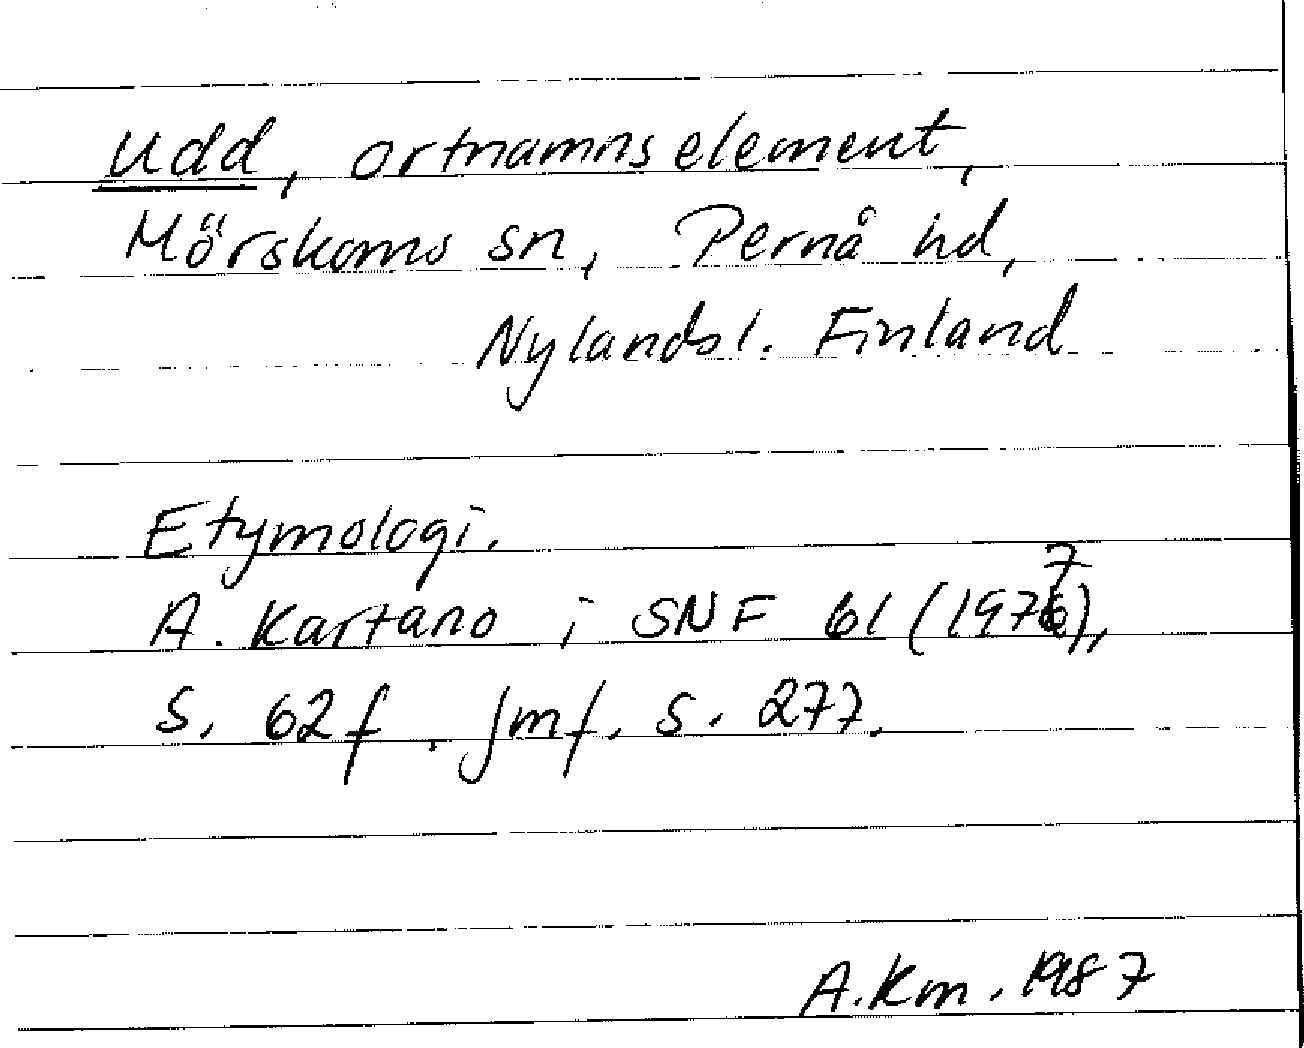 Udd, ortnamnselement,
Mörskoms sn, Pernå hd,
Nylandsl. Finland
Etymologi.
A. Kartano i SNF 61 (1977),
s. 62 f. Jmf. s. 277.
A.Km. 1987